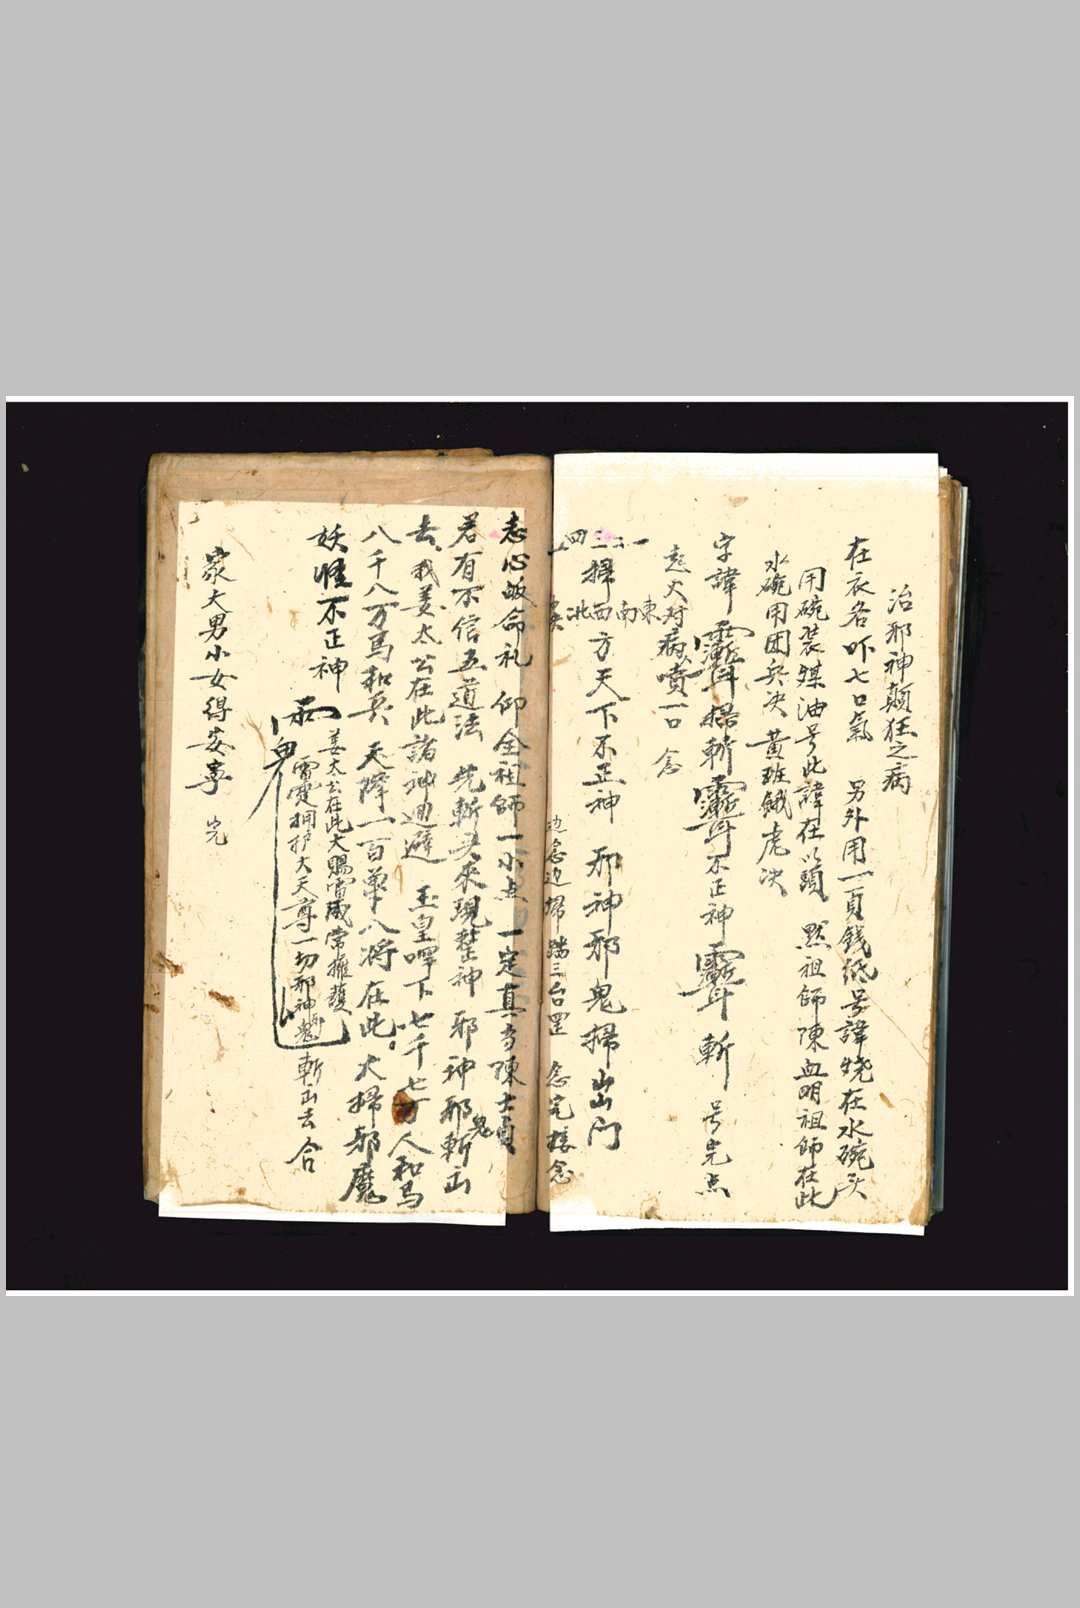 治邪神顛狂之病
在衣各吓七口氣 另外用一頁錢紙号諱燒在水碗头
用碗裝煤油号此諱在以頭 點祖師陳血明祖師在此
水碗用困兵决 黄班餓虎决
字諱 掃斬 不正神 斬 号完点
起火对病噴一口 念
一二三四五掃東南西北方天下不正神 邪神邪鬼掃出门
边念边掃 踏三台罡 念完接念
志心皈命礼 仰全祖師一小点 一定真当陳士員
若有不信五道法 先斬 來現 神 邪神邪鬼斬出
去 我姜太公在此諸神迴避 玉皇 下七千七万人和馬
八千八万馬和兵 天降一百單八将在此 大掃邪魔
妖怪不正神
姜太公在此大賜雷威常擁護
雷電拥护大天尊一切邪神 斬出去 合
家大男小女得安寧 完